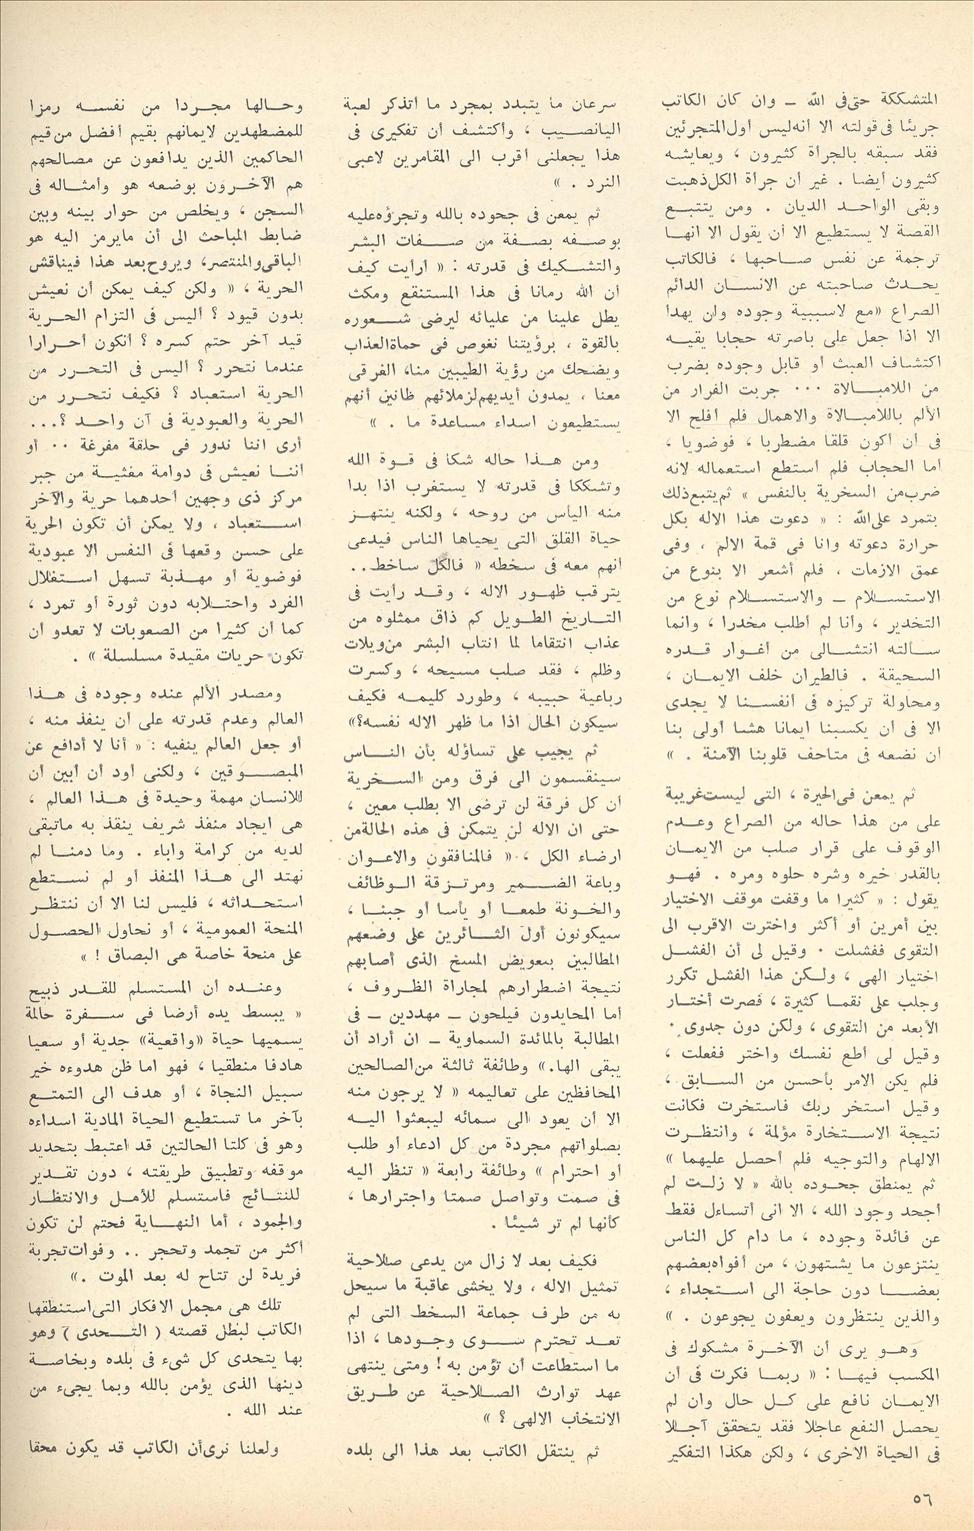 المتشككة حتى فى الله ــ وان كان الكاتب
جريئا فى قولته الا أنه ليس أول المتجرئين
فقد سبقه بالجرأة كثيرون ، ويعايشه
كثيرون أيضا . غير أن جرأة الكل ذهبت
وبقى الواحد الديان . ومن يتتبع
القصة لا يستطيع الا أن يقول الا انها
ترجمة عن نفس صاحبها ، فالكاتب
يحدث صاحبته عن الانسان الدائم
الصراع «مع لاسببية وجوده وان يهدأ
الا اذا جعل على باصرته حجابا يقيه
اكتشاف العبث أو قابل وجوده بضرب
من اللامبالاة ٠٠٠ جربت الفرار من
الألم باللامبالاة والاهمال فلم أفلح الا
فى أن أكون قلقا مضطربا ، فوضويا ،
أما الحجاب فلم أستطع استعماله لانه
ضرب من السخرية بالنفس » ثم يتبع ذلك
بتمرد على الله : « دعوت هذا الاله بكل
حرارة دعوته وانا فى قمة الالم ، وفى
عمق الازمات ، فلم أشعر الا بنوع من
الاستسلام ــ والاستسلام نوع من
التخدير ، وأنا لم أطلب مخدرا ، وانما
سألته انتشالى من أغوار قدره
السحيقة . فالطيران خلف الايمان ،
ومحاولة تركيزه فى أنفسنا لا يجدى
الا فى أن يكسبنا ايمانا هشا أولى بنا
أن نضعه فى متاحف قلوبنا الآمنة . »
ثم يمعن فى الحيرة ، التى ليست غريبة
على من هذا حاله من الصراع وعدم
الوقوف على قرار صلب من الايمان
بالقدر خيره وشره حلوه ومره . فهو
يقول : « كثيرا ما وقفت موقف الاختيار
بين أمرين أو أكثر واخترت الاقرب الى
التقوى ففشلت . وقيل لى أن الفشل
اختيار الهى ، ولكن هذا الفشل تكرر
وجلب على نقما كثيرة ، فصرت أختار
الأبعد من التقوى ، ولكن دون جدوى .
وقيل لى أطع نفسك واختر ففعلت ،
فلم يكن الامر بأحسن من السابق ،
وقيل استخر ربك فاستخرت فكانت
نتيجة الاستخارة مؤلمة ، وانتظرت
الالهام والتوجيه فلم أحصل عليهما »
ثم يمنطق جحوده بالله « لا زلت لم
أجحد وجود الله ، الا انى أتساءل فقط
عن فائدة وجوده ، ما دام كل الناس
ينتزعون ما يشتهون ، من أفواه بعضهم
بعضا دون حاجة الى استجداء ،
والذين ينتظرون ويعفون يجوعون . »
وهو يرى أن الآخرة مشكوك فى
المكسب فيها : « ربما فكرت فى أن
الايمان نافع على كل حال وان لم
يحصل النفع عاجلا فقد يتحقق آجلا
فى الحياة الاخرى ، ولكن هكذا التفكير
سرعان ما يتبدد بمجرد ما أتذكر لعبة
اليانصيب ، وأكتشف أن تفكيرى فى
هذا يجعلنى أقرب الى المقامرين لاعبى
النرد . »
ثم يمعن فى جحوده بالله وتجرؤه عليه
بوصفه بصفة من صفات البشر
والتشكيك فى قدرته : « أرأيت كيف
أن الله رمانا فى هذا المستنقع ومكث
يطل علينا من عليائه ليرضى شعوره
بالقوة ، برؤيتنا نغوص فى حمأة العذاب
ويضحك من رؤية الطيبين مناء الفرقى
معنا ، يمدون أيديهم لزملائهم ظانين أنهم
يستطيعون اسداء مساعدة ما . »
ومن هذا حاله شكا فى قوة الله
وتشككا فى قدرته لا يستغرب اذا بدا
منه اليأس من روحه ، ولكنه ينتهز
حياة القلق التى يحياها الناس فيدعى
أنهم معه فى سخطه « فالكل ساخط ..
يترقب ظهور الاله ، وقد رأيت فى
التاريخ الطويل كم ذاق ممثلوه من
عذاب انتقاما لما انتاب البشر من ويلات
وظلم ، فقد صلب مسيحه ، وكسرت
رباعية حبيبه ، وطورد كليمه فكيف
سيكون الحال اذا ما ظهر الاله نفسه؟»
ثم يجيب على تساؤله بأن الناس
سينقسمون الى فرق ومن السخرية
أن كل فرقة لن ترضى الا بطلب معين ،
حتى ان الاله لن يتمكن فى هذه الحالة من
ارضاء الكل ، « فالمنافقون والاعوان
وباعة الضمير ومرتزقة الوظائف
والخونة طمعا أو يأسا أو جبنا ،
سيكونون أول الثائرين على وضعهم
المطالبين بتعويض المسخ الذى أصابهم
نتيجة اضطرارهم لمجاراة الظروف ،
أما المحايدون فيلحون ــ مهددين ــ فى
المطالبة بالمائدة السماوية ــ ان أراد أن
يبقى الها.» وطائفة ثالثة من الصالحين
المحافظين على تعاليمه « لا يرجون منه
الا أن يعود الى سمائه ليبعثوا اليه
بصلواتهم مجردة من كل ادعاء أو طلب
أو احترام » وطائفة رابعة « تنظر اليه
فى صمت وتواصل صمتا واجترارها ،
كأنها لم تر شيئا .
فكيف بعد لا زال من يدعى صلاحية
تمثيل الاله ، ولا يخشى عاقبة ما سيحل
به من طرف جماعة السخط التى لم
تعد تحترم سوى وجودها ، اذا
ما استطاعت أن تؤمن به ! ومتى ينتهى
عهد توارث الصلاحية عن طريق
الانتخاب الالهى ؟ »
ثم ينتقل الكاتب بعد هذا الى بلده
وحالها مجردا من نفسه رمزا
للمضطهدين لايمانهم بقيم أفضل من قيم
الحاكمين الذين يدافعون عن مصالحهم
هم الآخرون بوضعه هو وأمثاله فى
السجن ، ويخلص من حوار بينه وبين
ضابط المباحث الى أن مايرمز اليه هو
الباقى والمنتصر، ويروح بعد هذا فيناقش
الحرية ، « ولكن كيف يمكن أن نعيش
بدون قيود ؟ أليس فى التزام الحرية
قيد آخر حتم كسره ؟ أنكون أحرارا
عندما نتحرر ؟ أليس فى التحرر من
الحرية استعباد ؟ فكيف نتحرر من
الحرية والعبودية فى آن واحد ؟...
أرى اننا ندور فى حلقة مفرغة .. أو
أننا نعيش فى دوامة مغثية من جبر
مركز ذى وجهين أحدهما حرية والآخر
استعباد ، ولا يمكن أن تكون الحرية
على حسن وقعها فى النفس الا عبودية
فوضوية أو مهذبة تسهل استغلال
الفرد واحتلابه دون ثورة أو تمرد ،
كما أن كثيرا من الصعوبات لا تعدو أن
تكون حريات مقيدة مسلسلة » .
ومصدر الألم عنده وجوده فى هذا
العالم وعدم قدرته على أن ينفذ منه ،
أو جعل العالم ينفيه : « أنا لا أدافع عن
المبصوقين ، ولكنى أود أن أبين أن
للانسان مهمة وحيدة فى هذا العالم ،
هى ايجاد منفذ شريف ينقذ به ماتبقى
لديه من كرامة واباء . وما دمنا لم
نهتد الى هذا المنفذ أو لم نستطع
استحداثه ، فليس لنا الا أن ننتظر
المنحة العمومية ، أو نحاول الحصول
على منحة خاصة هى البصاق ! »
وعنده أن المستسلم للقدر ذبيح
« يبسط يده أرضا فى سفرة حالمة
يسميها حياة «واقعية» جدية أو سعيا
هادفا منطقيا ، فهو اما ظن هدوءه خير
سبيل النجاة ، أو هدف الى التمتع
بآخر ما تستطيع الحياة المادية اسداءه
وهو فى كلتا الحالتين قد اغتبط بتحديد
موقفه وتطبيق طريقته ، دون تقدير
للنتائج فاستسلم للأمل والانتظار
والجمود ، أما النهاية فحتم لن تكون
أكثر من تجمد وتحجر .. وفوات تجربة
فريدة لن تتاح له بعد الموت .»
تلك هى مجمل الافكار التى استنطقها
الكاتب لبطل قصته ( التحدى ) وهو
بها يتحدى كل شىء فى بلده وبخاصة
دينها الذى يؤمن بالله وبما يجىء من
عند الله .
ولعلنا نرى أن الكاتب قد يكون محقا
٥٦